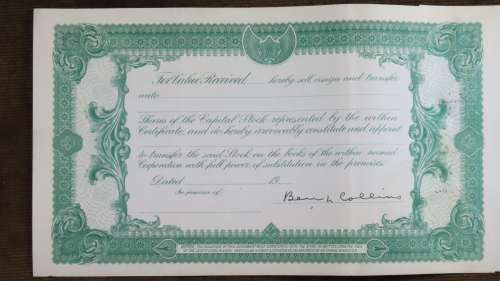 For Value Received, hereby sell, assign and transfer
unto
Shares of the Capital Stock represented by the within
Certificate, and do hereby irrevocably constitute and appoint
to transfer the said Stock on the books of the within named
Corporation with full power of substitution in the premises.
Dated 19
In presence of
Collins